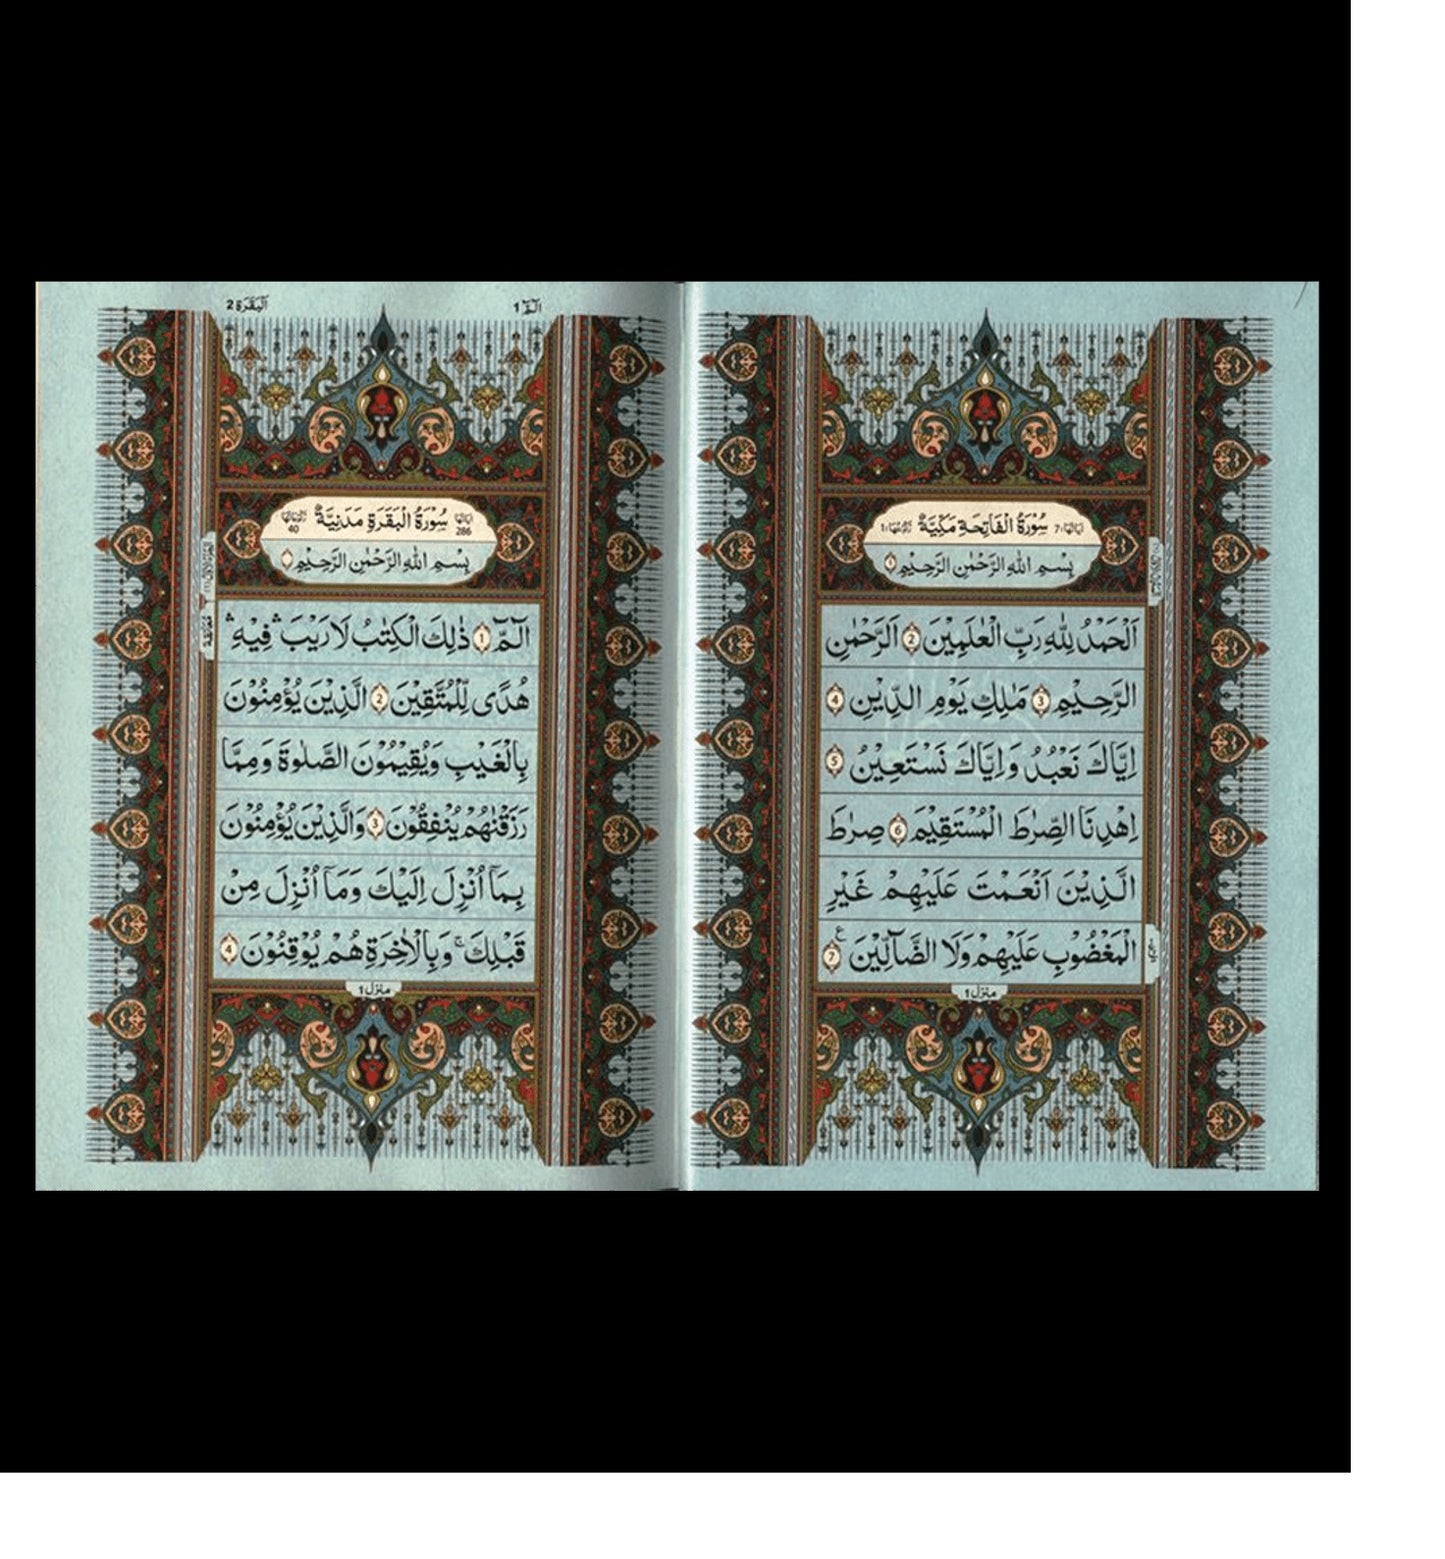 سُوْرَةُ الْفَاتِحَةِ مَكِّيَّةٌ
بِسْمِ اللّٰهِ الرَّحْمٰنِ الرَّحِيْمِ
اَلْحَمْدُ لِلّٰهِ رَبِّ الْعٰلَمِيْنَ 2 الرَّحْمٰنِ
الرَّحِيْمِ 3 مٰلِكِ يَوْمِ الدِّيْنِ 4
اِيَّاكَ نَعْبُدُ وَاِيَّاكَ نَسْتَعِيْنُ 5
اِهْدِنَا الصِّرٰطَ الْمُسْتَقِيْمَ 6 صِرٰطَ
الَّذِيْنَ اَنْعَمْتَ عَلَيْهِمْ غَيْرِ
الْمَغْضُوْبِ عَلَيْهِمْ وَلَا الضَّآلِّيْنَ 7
منزل 1
الٓمّٓ 1
اَلْبَقَرَة 2
سُوْرَةُ الْبَقَرَةِ مَدَنِيَّةٌ
286
40
بِسْمِ اللّٰهِ الرَّحْمٰنِ الرَّحِيْمِ
الٓمّٓ 1 ذٰلِكَ الْكِتٰبُ لَا رَيْبَ ۛ فِيْهِ ۛ
هُدًى لِّلْمُتَّقِيْنَ 2 الَّذِيْنَ يُؤْمِنُوْنَ
بِالْغَيْبِ وَيُقِيْمُوْنَ الصَّلٰوةَ وَمِمَّا
رَزَقْنٰهُمْ يُنْفِقُوْنَ 3 وَالَّذِيْنَ يُؤْمِنُوْنَ
بِمَآ اُنْزِلَ اِلَيْكَ وَمَآ اُنْزِلَ مِنْ
قَبْلِكَ ۚ وَبِالْاٰخِرَةِ هُمْ يُوْقِنُوْنَ 4
منزل 1